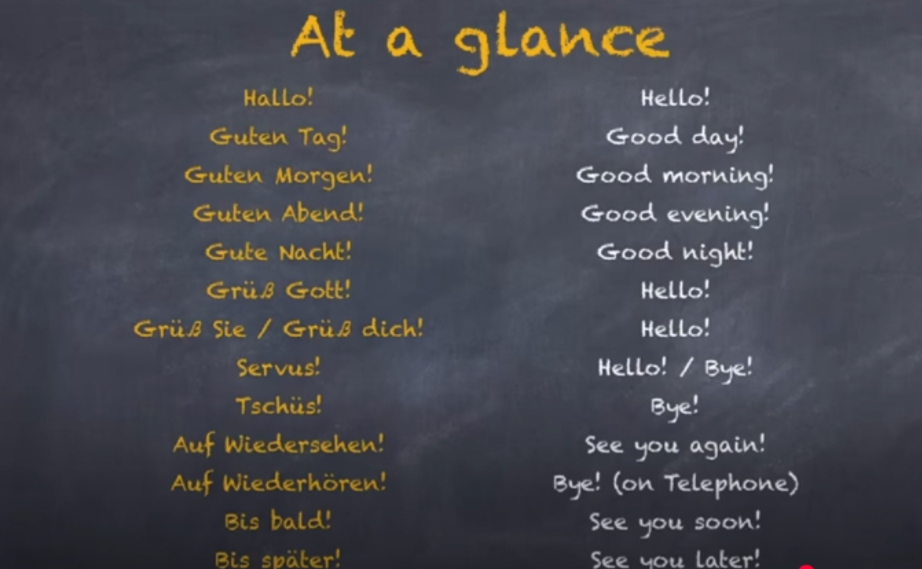 At a glance
Hallo! Hello!
Guten Tag! Good day!
Guten Morgen! Good morning!
Guten Abend! Good evening!
Gute Nacht! Good night!
Grüß Gott! Hello!
Grüß Sie / Grüß dich! Hello!
Servus! Hello! / Bye!
Tschüs! Bye!
Auf Wiedersehen! See you again!
Auf Wiederhören! Bye! (on Telephone)
Bis bald! See you soon!
Bis später! See you later!